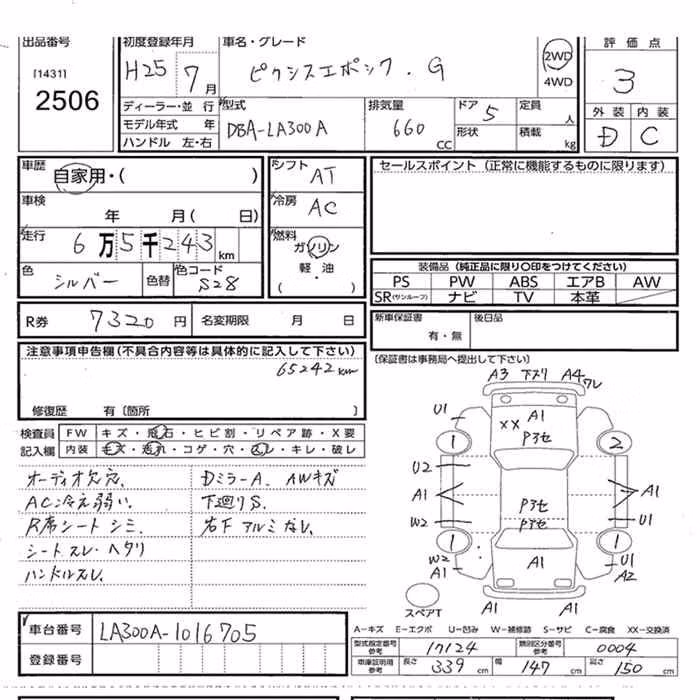 出品番号 初度登録年月 車名・グレード 評価点
[1431] H25 7月 ピクシスエポック.G 2WD 3
2506 4WD
外装 内装
ディーラー・並行 型式 排気量 ドア 5 定員 人 D C
モデル年式 年 DBA-LA300A 660 CC 形状 積載 kg
ハンドル 左・右
車歴 自家用・( ) シフト AT セールスポイント (正常に機能するものに限ります)
車検 年 月( 日) 冷房 AC
走行 6万5千243km 燃料 ガソリン
軽・油
( ・ )
色 シルバー 色替 色コード S28
装備品 (純正品に限り○印をつけてください)
PS PW ABS エアB AW
SR(サンルーフ) ナビ TV 本革
R券 7320円 名変期限 月 日 新車保証書 有・無 後日品
注意事項申告欄(不具合内容等は具体的に記入して下さい) (保証書は事務局へ提出して下さい)
65242km
修復歴 有〔箇所 〕
検査員 FW キズ・飛石・ヒビ割・リペア跡・X要
記入欄 内装 キズ・汚れ・コゲ・穴・スレ・キレ・破レ
オーディオ欠穴. DミラーA. AWキズ
AC冷え弱い. 下廻りS.
R席シートシミ. 右下アルミなし.
シートスレ・ヘタリ
ハンドルスレ.
A3 下スリ A4 ワレ
U1 XX A1
1 P3セ 2
U2
A1 P3セ A1
W2 P3セ U1
1 1
W2 A1 U1
A1 A2
スペアT A1 A1
車台番号 LA300A-1016705
登録番号
A-キズ E-エクボ U-凹み W-補修跡 S-サビ C-腐食 XX-交換済
型式指定番号 参考 17124 類別区分番号 参考 0004
車庫証明用 参考 長さ 339 cm 幅 147 cm 高さ 150 cm